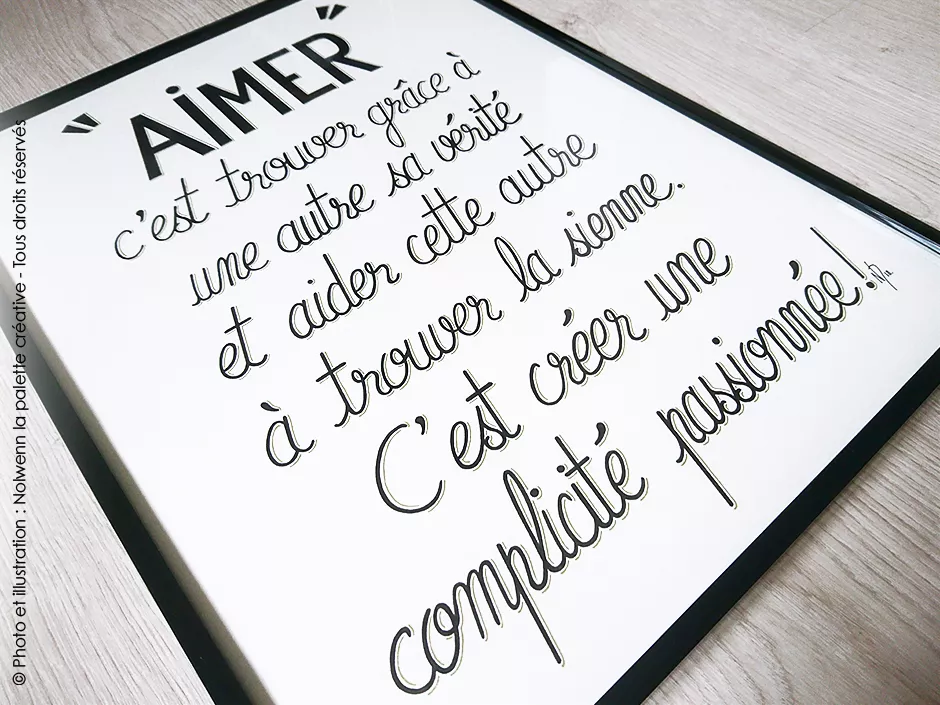 "AiMER"
c'est trouver grâce à
une autre sa vérité
et aider cette autre
à trouver la sienne.
C'est créer une
complicité passionnée!
© Photo et illustration : Nolwenn la palette créative - Tous droits réservés